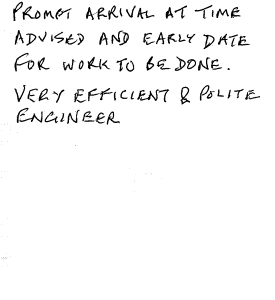 PROMPT ARRIVAL AT TIME
ADVISED AND EARLY DATE
FOR WORK TO BE DONE.
VERY EFFICIENT & POLITE
ENGINEER